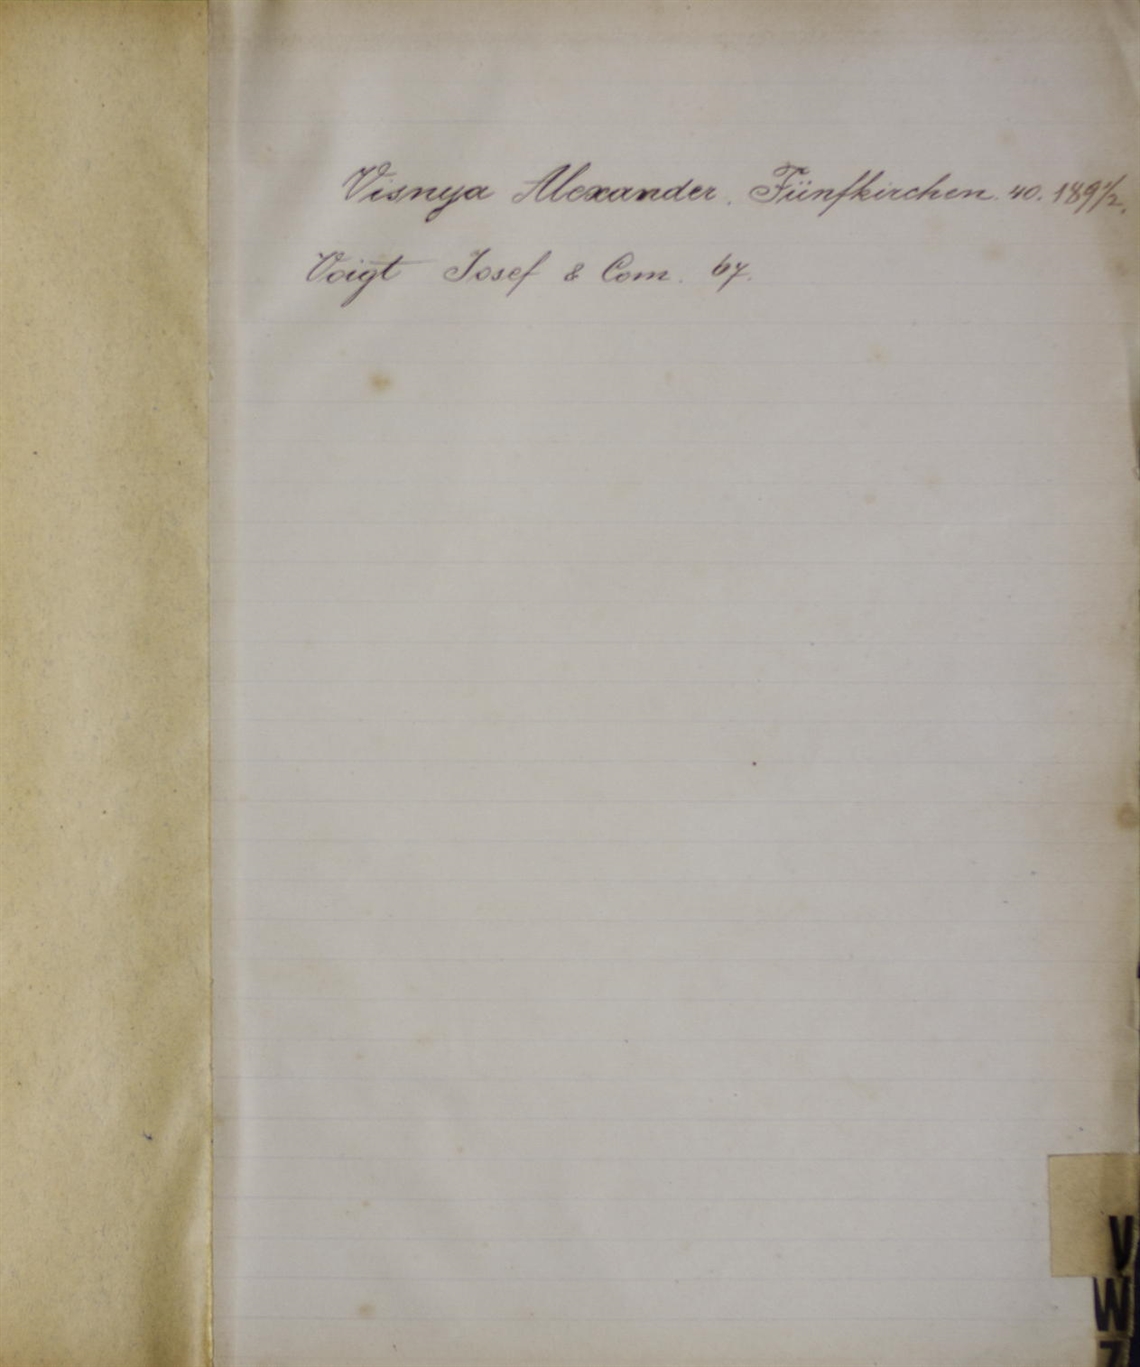 Visnya Alexander. Fünfkirchen. 40. 189 1/2.
Voigt Josef & Com. 67.
V
W
Z